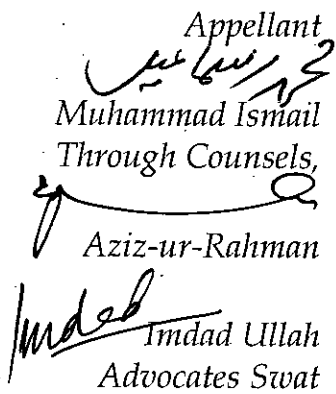 Appellant
محمد اسماعیل
Muhammad Ismail
Through Counsels,
Aziz-ur-Rahman
Imdad
Imdad Ullah
Advocates Swat